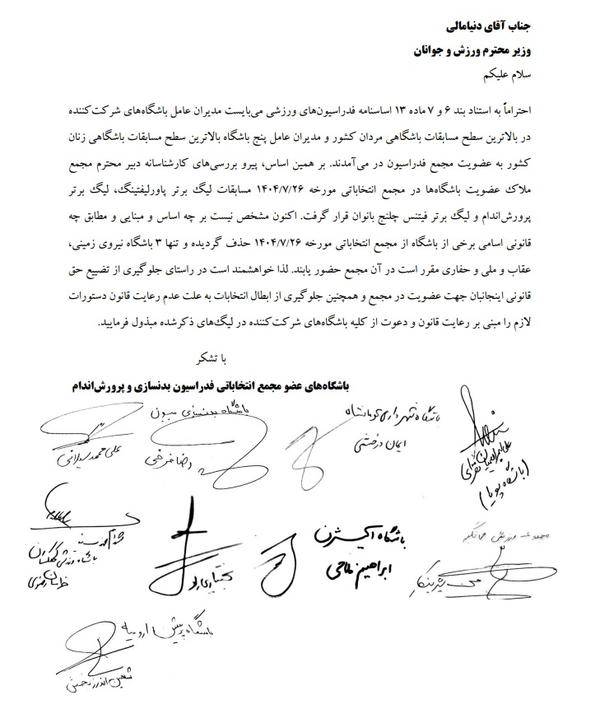 جناب آقای دنیامالی
وزیر محترم ورزش و جوانان
سلام علیکم
احتراماً به استناد بند ۶ و ۷ ماده ۱۳ اساسنامه فدراسیون‌های ورزشی می‌بایست مدیران عامل باشگاه‌های شرکت‌کننده
در بالاترین سطح مسابقات باشگاهی مردان کشور و مدیران عامل پنج باشگاه بالاترین سطح مسابقات باشگاهی زنان
کشور به عضویت مجمع فدراسیون در می‌آمدند. بر همین اساس، پیرو بررسی‌های کارشناسانه دبیر محترم مجمع
ملاک عضویت باشگاه‌ها در مجمع انتخاباتی مورخه ۱۴۰۴/۷/۲۶ مسابقات لیگ برتر پاورلیفتینگ، لیگ برتر
پرورش‌اندام و لیگ برتر فیتنس چلنج بانوان قرار گرفت. اکنون مشخص نیست بر چه اساس و مبنایی و مطابق چه
قانونی اسامی برخی از باشگاه از مجمع انتخاباتی مورخه ۱۴۰۴/۷/۲۶ حذف گردیده و تنها ۳ باشگاه نیروی زمینی،
عقاب و ملی و حفاری مقرر است در آن مجمع حضور یابند. لذا خواهشمند است در راستای جلوگیری از تضییع حق
قانونی اینجانبان جهت عضویت در مجمع و همچنین جلوگیری از ابطال انتخابات به علت عدم رعایت قانون دستورات
لازم را مبنی بر رعایت قانون و دعوت از کلیه باشگاه‌های شرکت‌کننده در لیگ‌های ذکرشده مبذول فرمایید.
با تشکر
باشگاه‌های عضو مجمع انتخاباتی فدراسیون بدنسازی و پرورش‌اندام
باشگاه شهرداری کرمانشاه
ایمان درخشی
باشگاه بدنسازی
رضا فرخی
علی محمد
(باشگاه پویا)
باشگاه اکیژن
ابراهیم
بختیاری
باشگاه
خراسان رضوی
مجموعه ورزشی
باشگاه پرش ارومیه